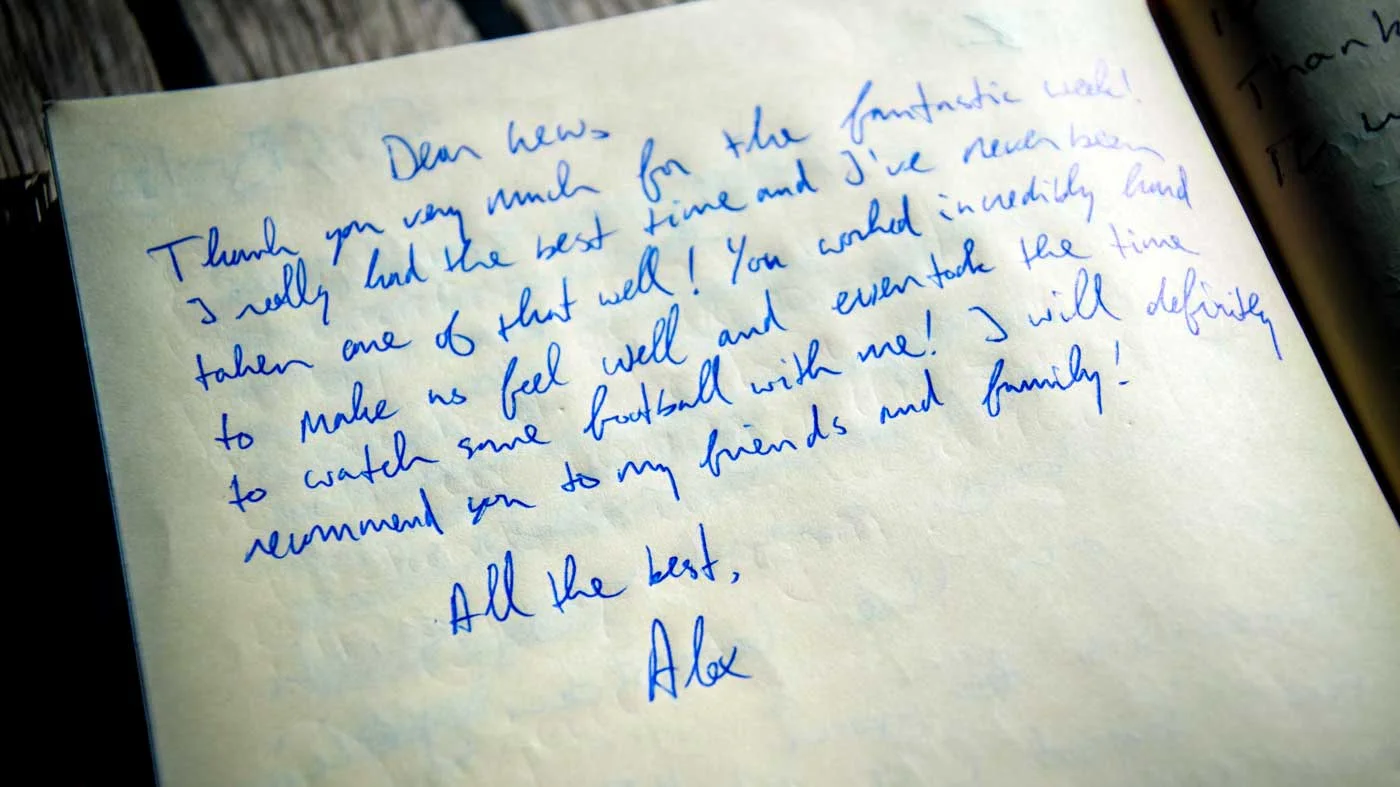 Dear
Thank you very much for the fantastic week!
I really had the best time and I've never been
taken care of that well! You worked incredibly hard
to make us feel well and even took the time
to watch some football with me! I will definitely
recommend you to my friends and family!
All the best,
Alex
Thank